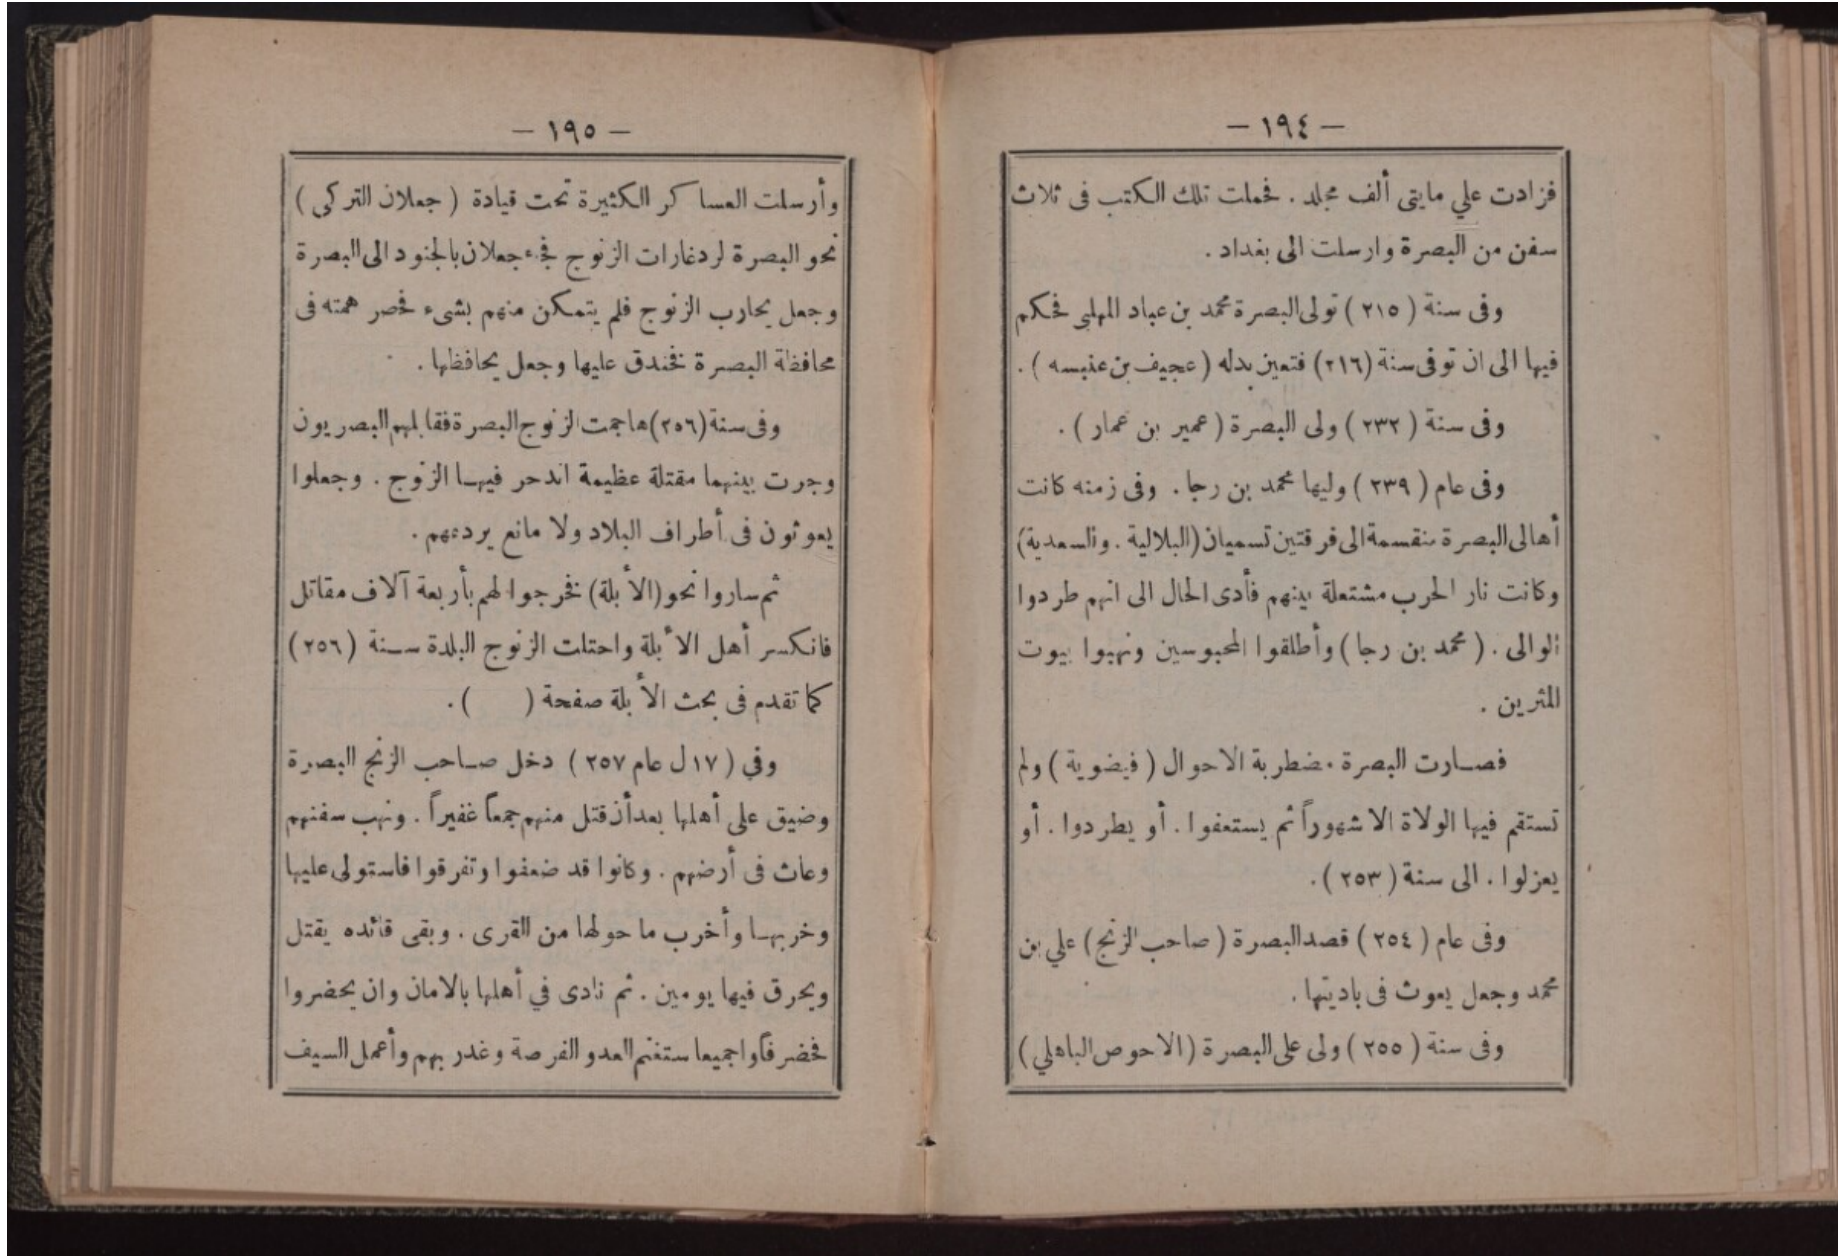 — ١٩٤ —
فزادت علي مايتى ألف مجلد . فحملت تلك الكتب فى ثلاث
سفن من البصرة وارسلت الى بغداد .
وفى سنة ( ٢١٥ ) تولى البصرة محمد بن عباد المهلبى فحكم
فيها الى ان توفى سنة (٢١٦) فتعين بدله ( عجيف بن عنبسه ) .
وفى سنة ( ٢٣٢ ) ولى البصرة ( عمير بن عمار ) .
وفى عام ( ٢٣٩ ) وليها محمد بن رجا . وفى زمنه كانت
أهالى البصرة منقسمة الى فرقتين تسميان (البلالية . والسعدية)
وكانت نار الحرب مشتعلة بينهم فأدى الحال الى انهم طردوا
الوالى . ( محمد بن رجا ) وأطلقوا المحبوسين ونهبوا بيوت
المثرين .
فصارت البصرة مضطربة الاحوال ( فيضوية ) ولم
تستقم فيها الولاة الا شهوراً ثم يستعفوا . أو يطردوا . أو
يعزلوا . الى سنة ( ٢٥٣ ) .
وفى عام ( ٢٥٤ ) قصد البصرة ( صاحب الزنج ) علي بن
محمد وجعل يعوث فى باديتها .
وفى سنة ( ٢٥٥ ) ولى على البصرة ( الاحوص الباهلي )
— ١٩٥ —
وأرسلت العساكر الكثيرة تحت قيادة ( جعلان التركى )
نحو البصرة لرد غارات الزنوج فجاء جعلان بالجنود الى البصرة
وجعل يحارب الزنوج فلم يتمكن منهم بشىء فحصر همته فى
محافظة البصرة فخندق عليها وجعل يحافظها .
وفى سنة (٢٥٦) هاجمت الزنوج البصرة فقابلهم البصريون
وجرت بينهما مقتلة عظيمة اندحر فيها الزنوج . وجعلوا
يعوثون فى أطراف البلاد ولا مانع يردعهم .
ثم ساروا نحو (الأبلة) فخرجوا لهم بأربعة آلاف مقاتل
فانكسر أهل الأبلة واحتلت الزنوج البلدة سنة (٢٥٦)
كما تقدم فى بحث الأبلة صفحة (     ) .
وفي ( ١٧ ل عام ٢٥٧ ) دخل صاحب الزنج البصرة
وضيق على أهلها بعد أن قتل منهم جمعاً غفيراً . ونهب سفنهم
وعاث فى أرضهم . وكانوا قد ضعفوا وتفرقوا فاستولى عليها
وخربها وأخرب ما حولها من القرى . وبقى قائده يقتل
ويحرق فيها يومين . ثم نادى في أهلها بالامان وان يحضروا
فحضر فأوا جميعا ستغنم العدو الفرصة وغدر بهم وأعمل السيف